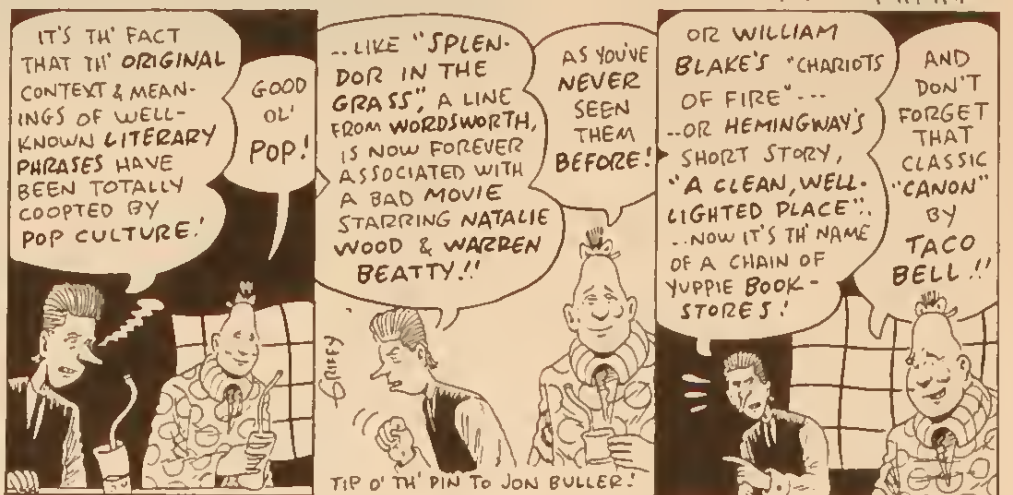 IT'S TH' FACT
THAT TH' ORIGINAL
CONTEXT & MEAN-
INGS OF WELL-
KNOWN LITERARY
PHRASES HAVE
BEEN TOTALLY
COOPTED BY
POP CULTURE!
GOOD
OL'
POP!
..LIKE "SPLEN-
DOR IN THE
GRASS", A LINE
FROM WORDSWORTH,
IS NOW FOREVER
ASSOCIATED WITH
A BAD MOVIE
STARRING NATALIE
WOOD & WARREN
BEATTY!!
AS YOU'VE
NEVER
SEEN
THEM
BEFORE!
GRIFFY
TIP O' TH' PIN TO JON BULLER!
OR WILLIAM
BLAKE'S "CHARIOTS
OF FIRE"---
..OR HEMINGWAY'S
SHORT STORY,
"A CLEAN, WELL-
LIGHTED PLACE"..
..NOW IT'S TH' NAME
OF A CHAIN OF
YUPPIE BOOK-
STORES!
AND
DON'T
FORGET
THAT
CLASSIC
"CANON"
BY
TACO
BELL!!